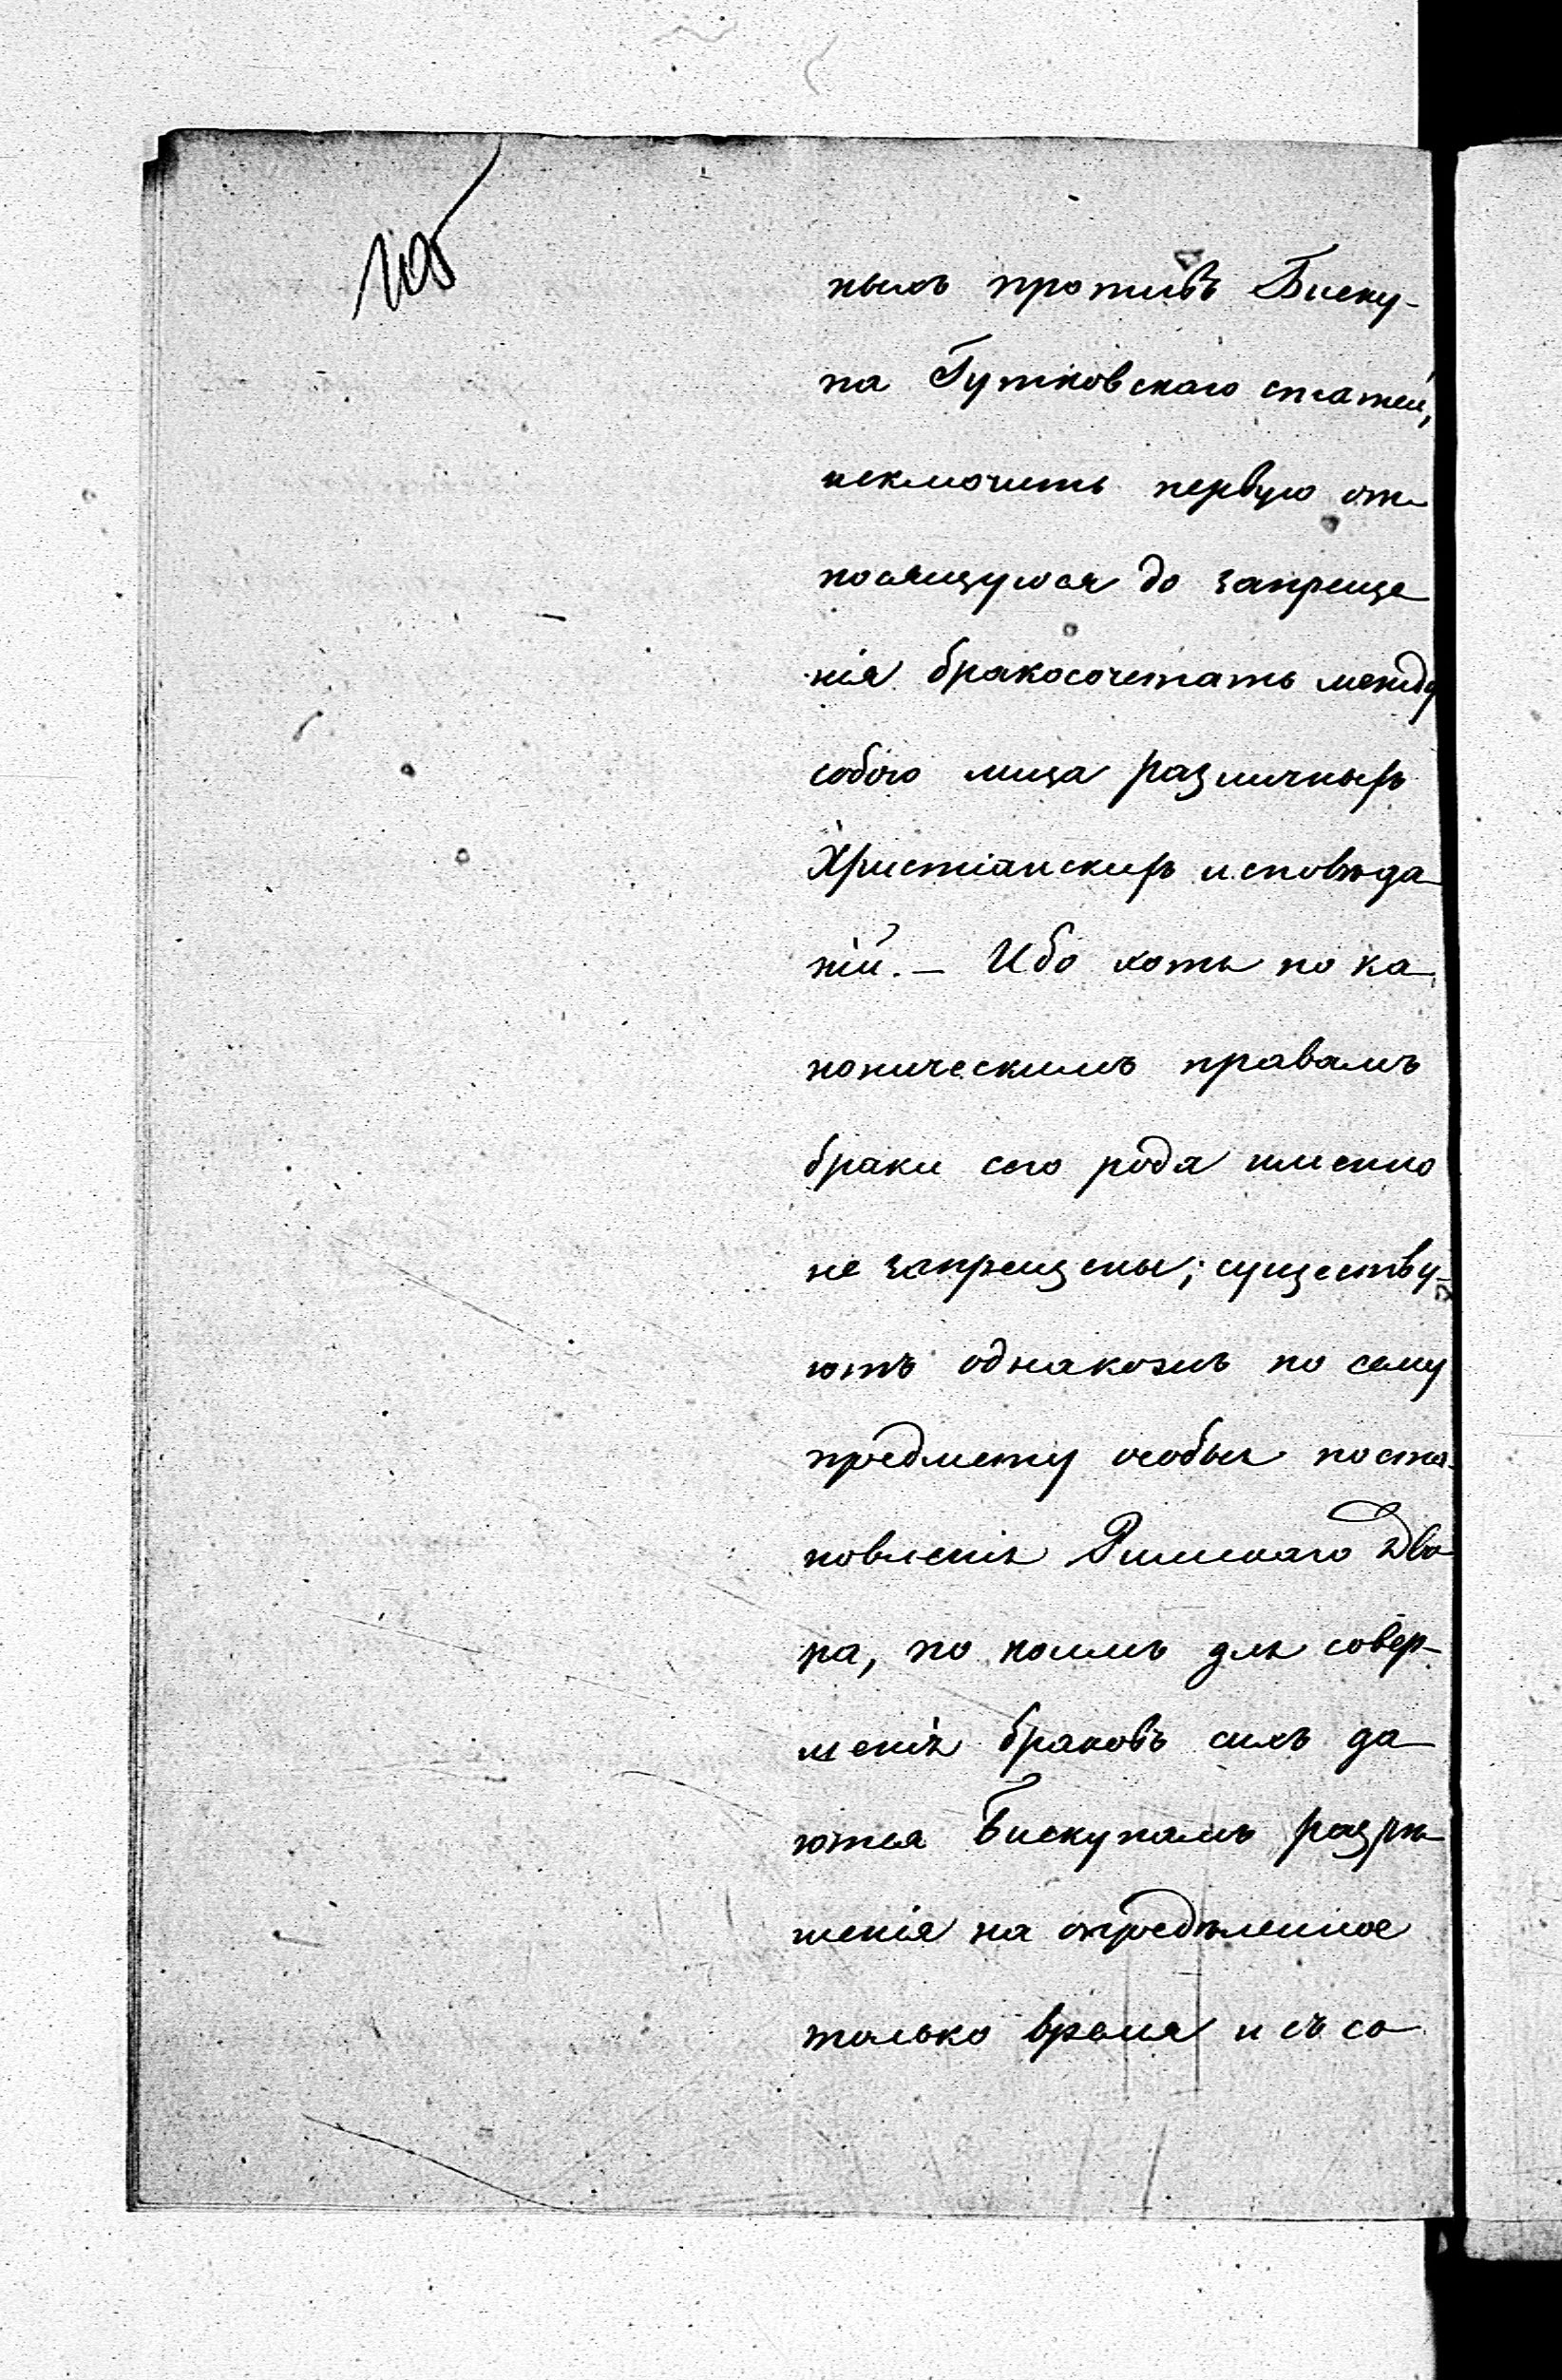 105
ныхъ противъ Биску-
па Гутковскаго статей,
исключить первую от-
носящуюся до запреще-
нія бракосочетать между
собою лица различныхъ
Христіанскихъ исповѣда-
ній. — Ибо хотя по ка-
ноническимъ правамъ
браки сего рода именно
не запрещены; существу-
ютъ однакожъ по сему
предмету особыя поста-
новленія Римскаго Дво-
ра, по коимъ для совер-
шенія браковъ сихъ да-
ются Бискупамъ разрѣ-
шенія на опредѣленное
только время и съ со-